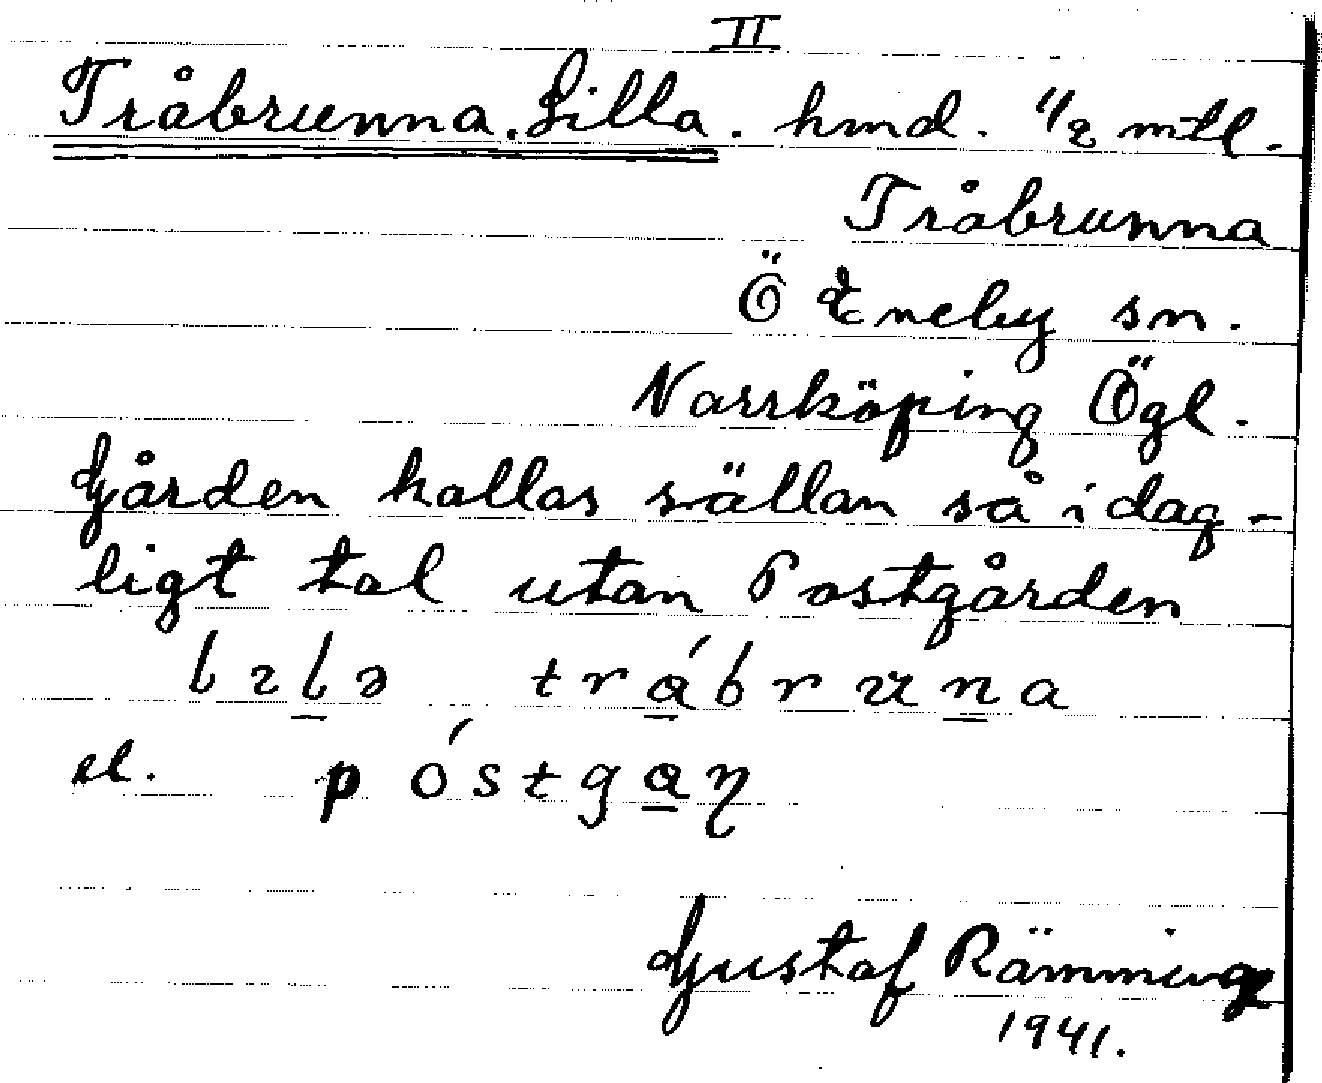 II
Tråbrunna. Lilla. hmd. 1/2 mtl.
Tråbrunna
Ö Eneby sn.
Norrköping Ögl.
Gården kallas sällan så i dag-
ligt tal utan Postgården
el.
Gustaf Rämming
1941.